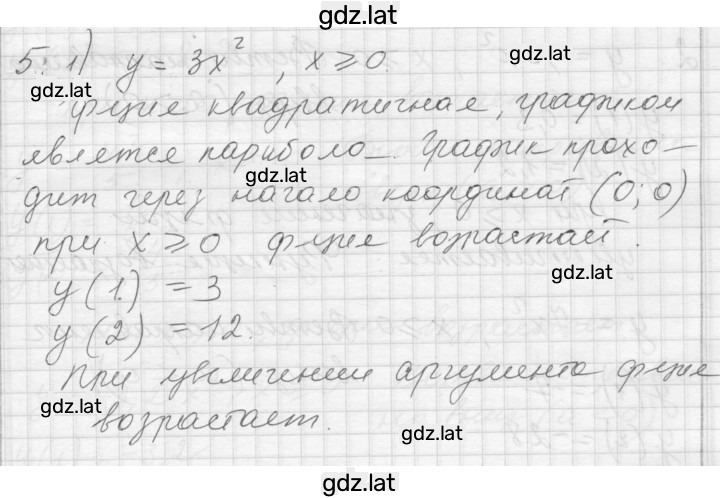 gdz.lat
5. 1) y = 3x², x ⩾ 0.
gdz.lat
gdz.lat
ф-ция квадратичная, графиком
является парибола. График прохо-
gdz.lat
дит через начало координат (0; 0)
при x ⩾ 0 ф-ция возрастает.
gdz.lat
y(1) = 3
y(2) = 12.
При увеличении аргумента ф-ция
gdz.lat
возрастает.
gdz.lat
gdz.lat